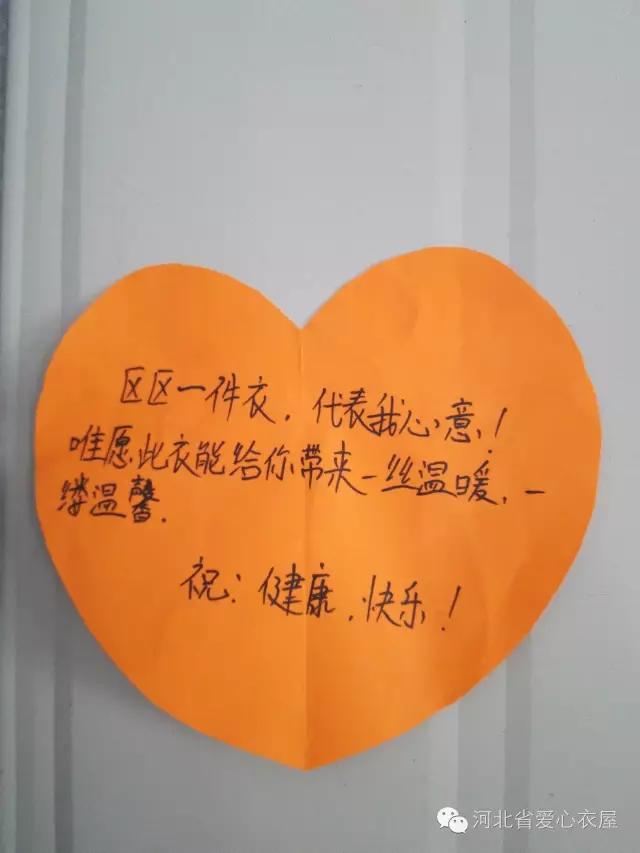 区区一件衣，代表我心意！
唯愿此衣能给你带来一丝温暖，一
缕温馨．
祝：健康，快乐！
河北省爱心衣屋